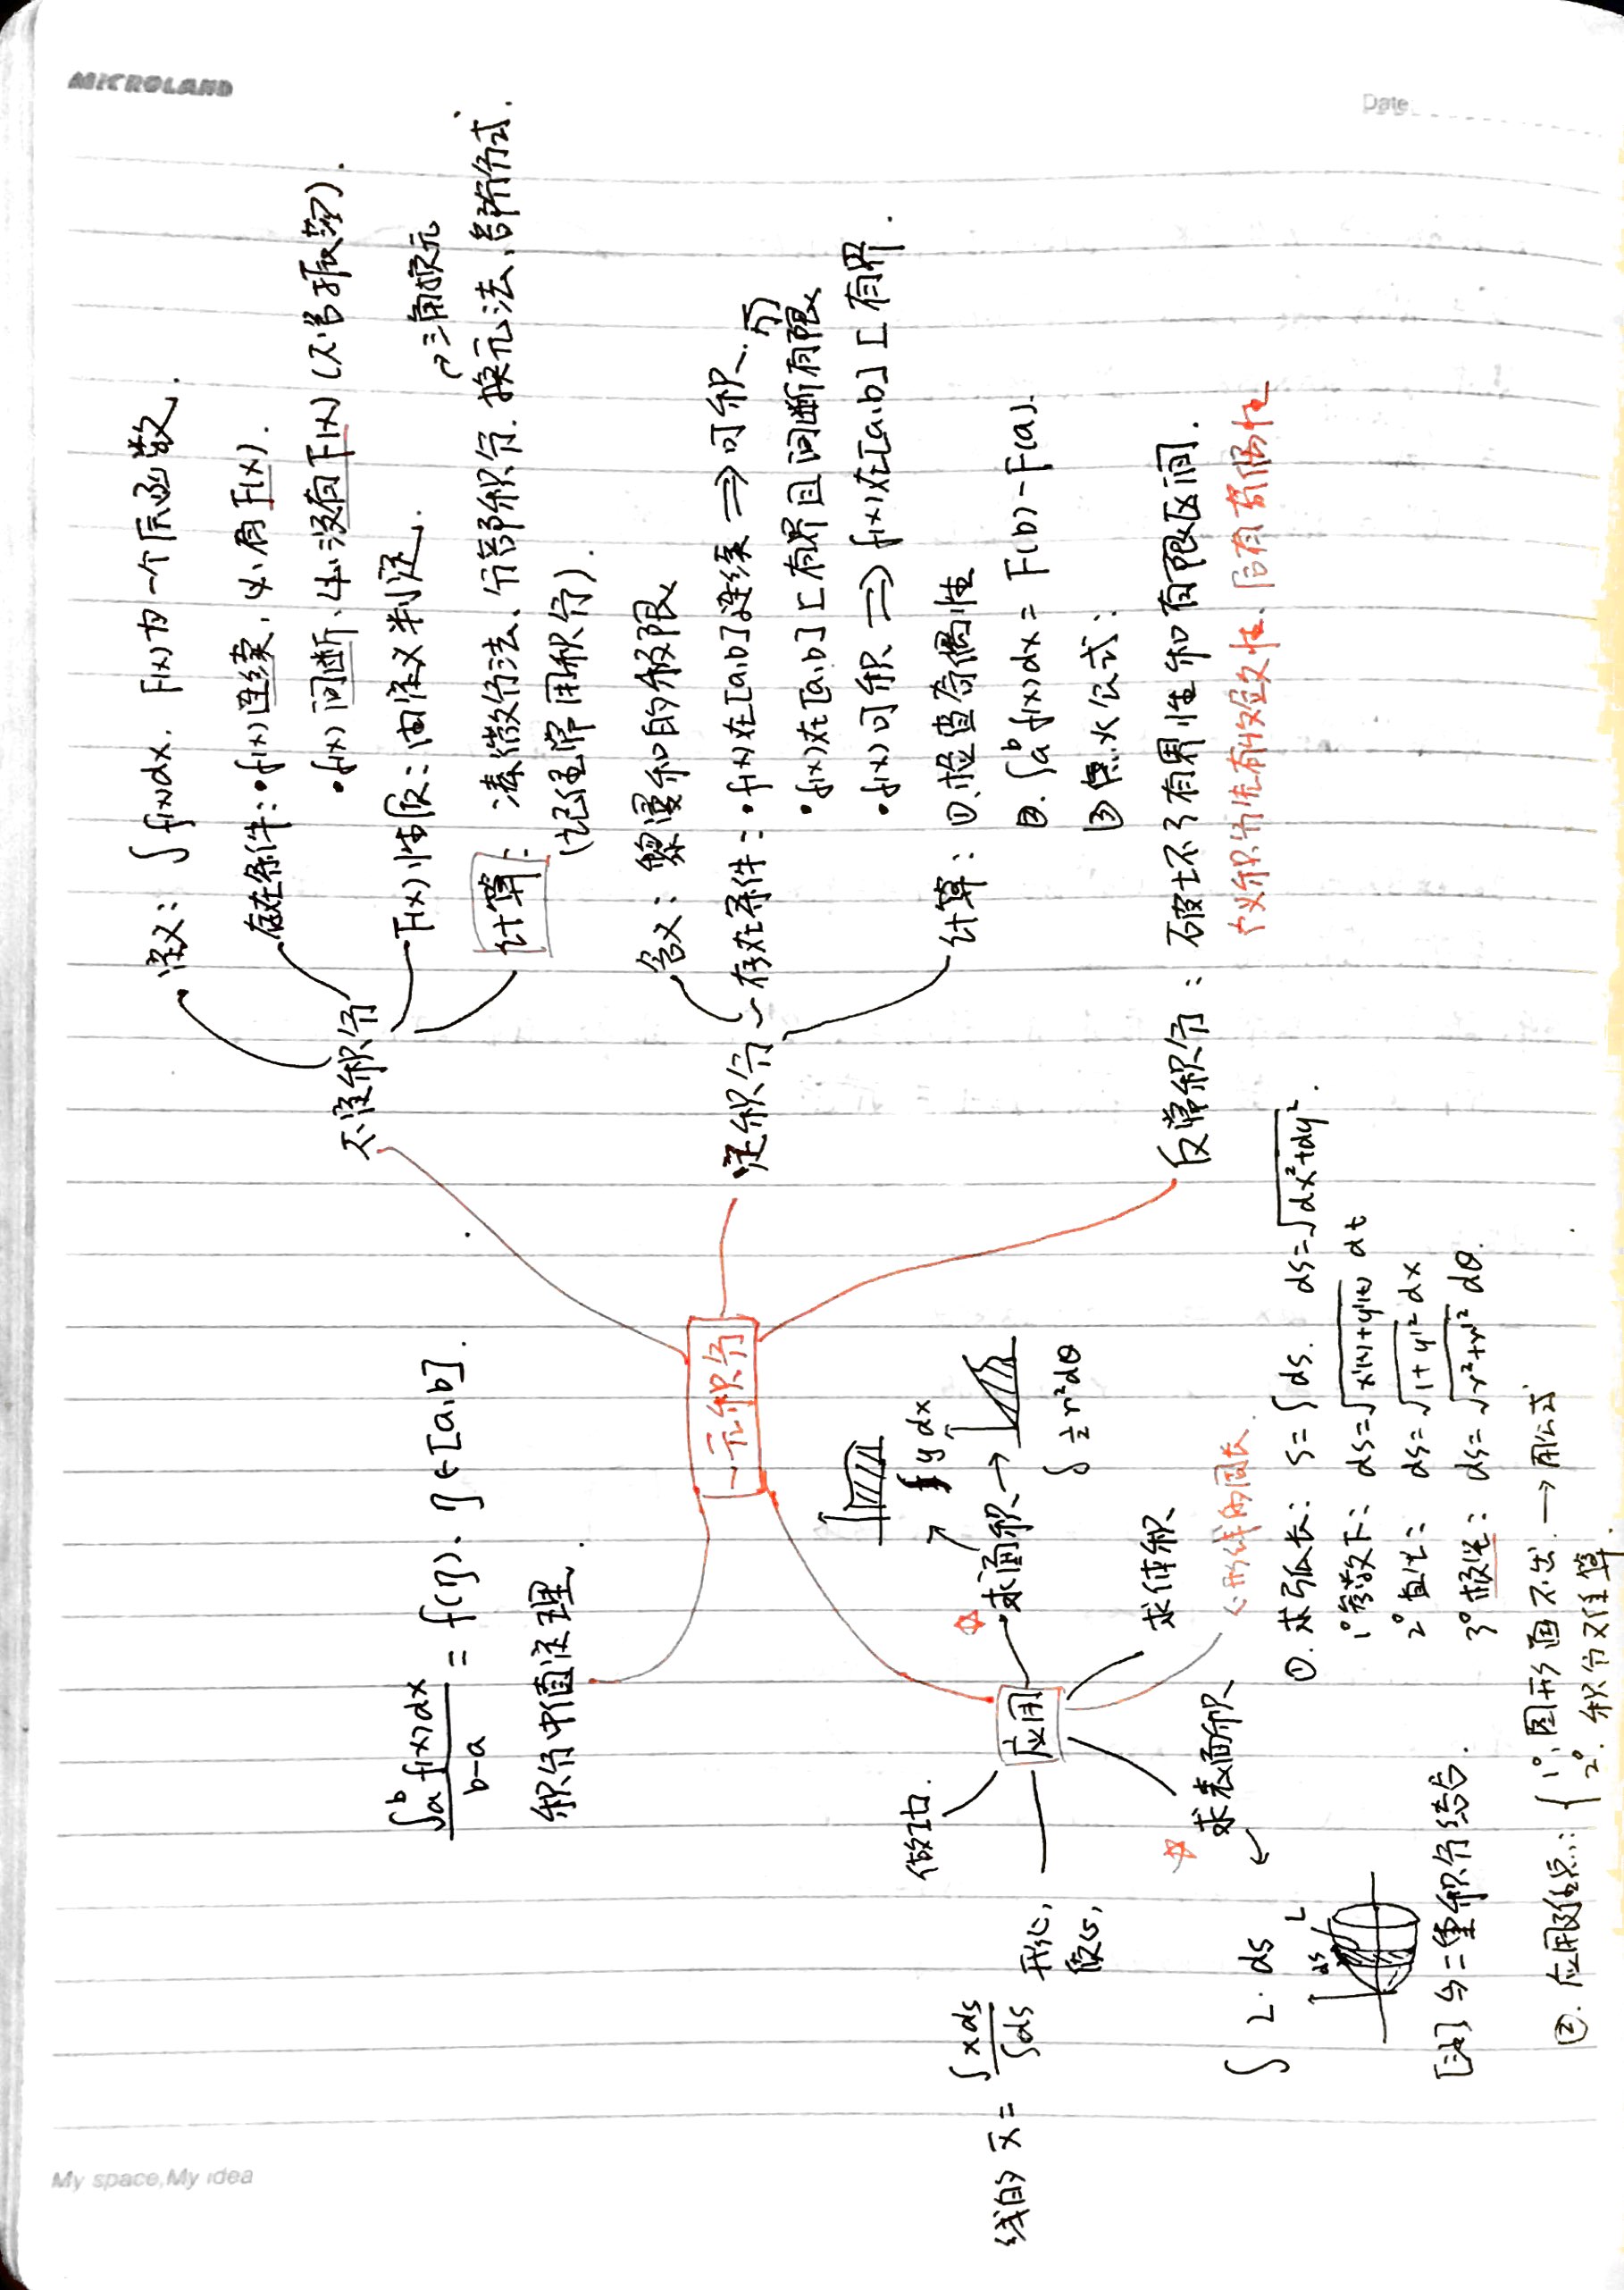 My space,My idea
MICROLAND
定义: ∫f(x)dx. F(x)为一个原函数.
存在条件: •f(x)连续, 必有F(x).
•f(x)间断, 必没有F(x) (不含振荡).
不定积分
F(x)性质: 由定义判定.
→三角换元
计算: 凑微分法、分部积分. 换元法、部分分式.
(记住常用积分).
∫_a^b f(x)dx / b-a = f(η). η∈[a,b].
积分中值定理.
一元积分
含义: 黎曼和的极限
定积分
存在条件: •f(x)在[a,b]连续 ⇒ 可积.
•f(x)在[a,b]上有界且间断有限
•f(x)可积 ⇒ f(x)在[a,b]上有界.
计算: ①.检查奇偶性
②. ∫_a^b f(x)dx = F(b)-F(a).
③点火公式:
反常积分: 破坏了有界性和有限区间.
积分先有收敛性、后有奇偶性
应用
做功.
线的 x̄ = ∫xds / ∫ds
形心,
质心,
求面积
∫ydx
∫ ½r²dθ
求体积
求表面积
∫ L·ds
ds L
[注] 与二重积分结合.
心形线的周长.
①. 求弧长: s=∫ds. ds=√dx²+dy².
1° 参数下: ds=√x'(t)+y'(t) dt
2° 直坐: ds=√1+y'² dx
3° 极坐: ds=√r²+r'² dθ.
②. 应用难点: { 1°. 图形画不出. → 用公式
2°. 积分又难算.
Date